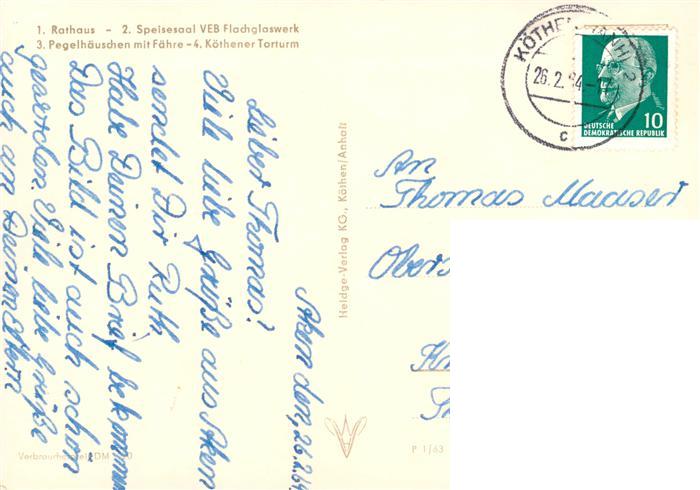 1. Rathaus - 2. Speisesaal VEB Flachglaswerk
3. Pegelhäuschen mit Fähre - 4. Köthener Torturm
KÖTHEN (ANH) 2
26.2.64
c
DEUTSCHE
DEMOKRATISCHE REPUBLIK
10
Aken den, 26.2.64
Lieber Thomas!
Viele liebe Grüße aus Aken
sendet Dir Ruth
Habe Deinen Brief bekommen
Das Bild ist auch schön
geworden. Viele liebe Grüße
auch an Deine Eltern
Heldge-Verlag KG., Köthen/Anhalt
An
Thomas Maaser
P 1/63